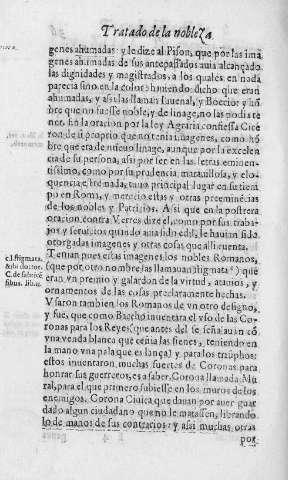 Tratado de la nobleza
genes ahumadas y le dize al Pison, que por las ima
genes ahumadas de sus antepassados auia alcançado
las dignidades y magistrados, a los quales en nada
parecia sino en la color: haziendo dicho que eran
ahumadas, y assi las llaman Iuuenal, y Boecio: y hõ
bre que no fuesse noble, y de linage, no las podia te
ner. En la oracion por la ley Agraria confiessa Cice
ron de si proprio que no tenia imagenes, como hõ
bre que era de nueuo linage, aunque por la excelen
cia de su persona, assi por ser en las letras eminen-
tissimo, como por su prudencia marauillosa, y elo-
quencia estremada, tuuo principal lugar en su tiem
po en Roma, y merecio estas y otras preeminẽcias
de los nobles y Patricios. A si que en la postrera
oracion contra Verres dize el, como por sus traba-
jos y seruicios quando auia sido edil, le hauian sido
otorgadas imagenes y otras cosas que alli cuenta.
Tenian pues estas imagenes los nobles Romanos,
c.l. stigmata. (que por otro nombre las llamauan stigmata) que
&ibi doctor. eran vn premio y galardon de la virtud, atauios, y
C. de fabricẽ ornamentos de las cosas preclaramente hechas.
sibus. lib. 11. Vsaron tambien los Romanos de vn otro designo,
y fue, que como Baccho inuentara el vso de las Co-
ronas para los Reyes (que antes del se señalauã cõ
vna venda blanca que ceñia las sienes, teniendo en
la mano vna pala que es lança) y para los triũphos:
estos inuentaron muchas suertes de Coronas para
honrar sus guerreros, es a saber, Corona llamada Mu
ral, para el que primero subiesse en los muros de los
enemigos. Corona Ciuica que dauan por auer guar
dado algun ciudadano que no le matassen, librando
lo de manos de sus contrarios: y assi muchas otras
por